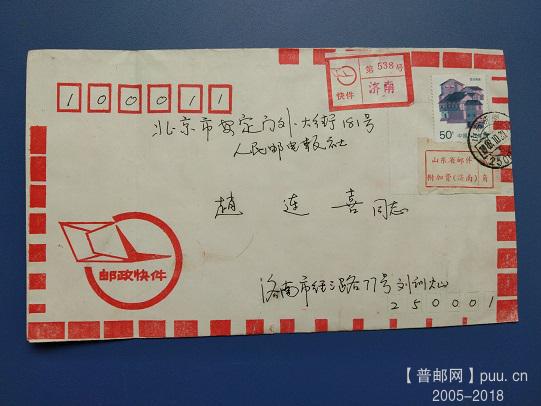 第538号
快件 济南
100011
50分
北京市安定门外大街181号
人民邮电报社
山东省邮件
附加费(济南)角
赵连喜同志
邮政快件
济南市经三路77号刘训山
250001
【普邮网】puu.cn
2005-2018